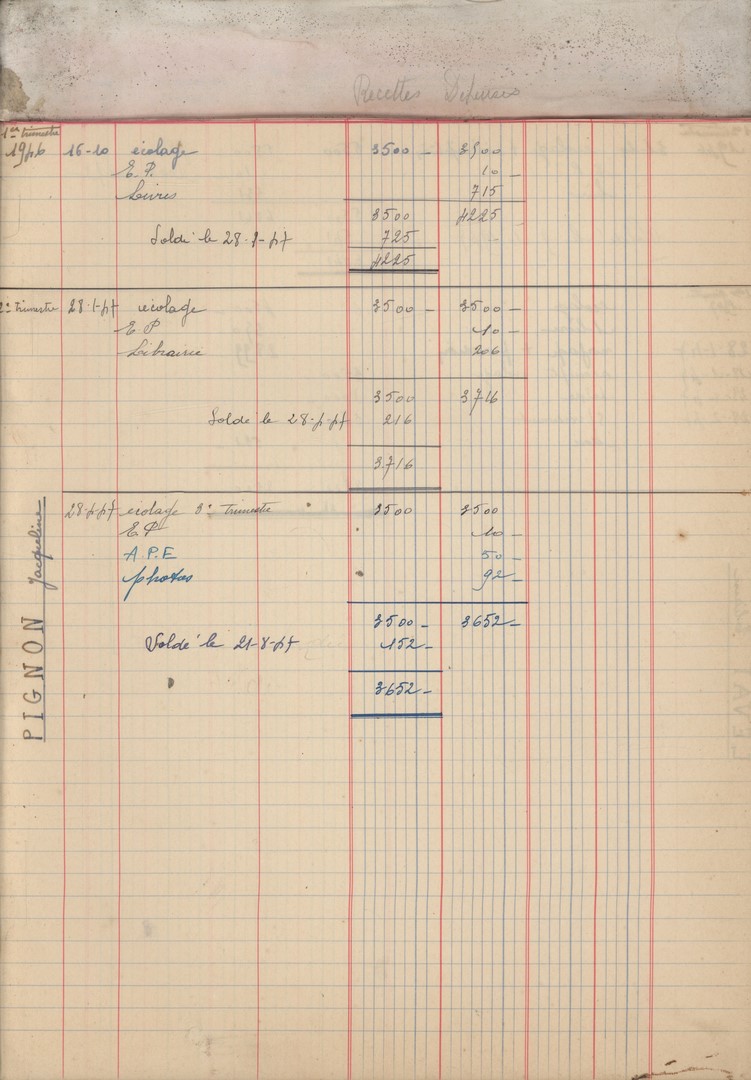 Recettes Dépenses
1er trimestre
1946 16-10 écolage 3500 - 3500
E. P. 10 -
Livres 715
3500 4225 -
Soldé le 28-1-47 725
4225
2e trimestre 28-1-47 écolage 3500 - 3500 -
E P 10 -
Librairie 206
3500 3716
Soldé le 28-4-47 216
3.716
28-4-47 écolage 3e trimestre 3500 3500
E P 10 -
A.P.E 50 -
photos 92 -
3500 - 3652 -
Soldé le 21-8-47 152 -
3652 -
PIGNON Jacqueline